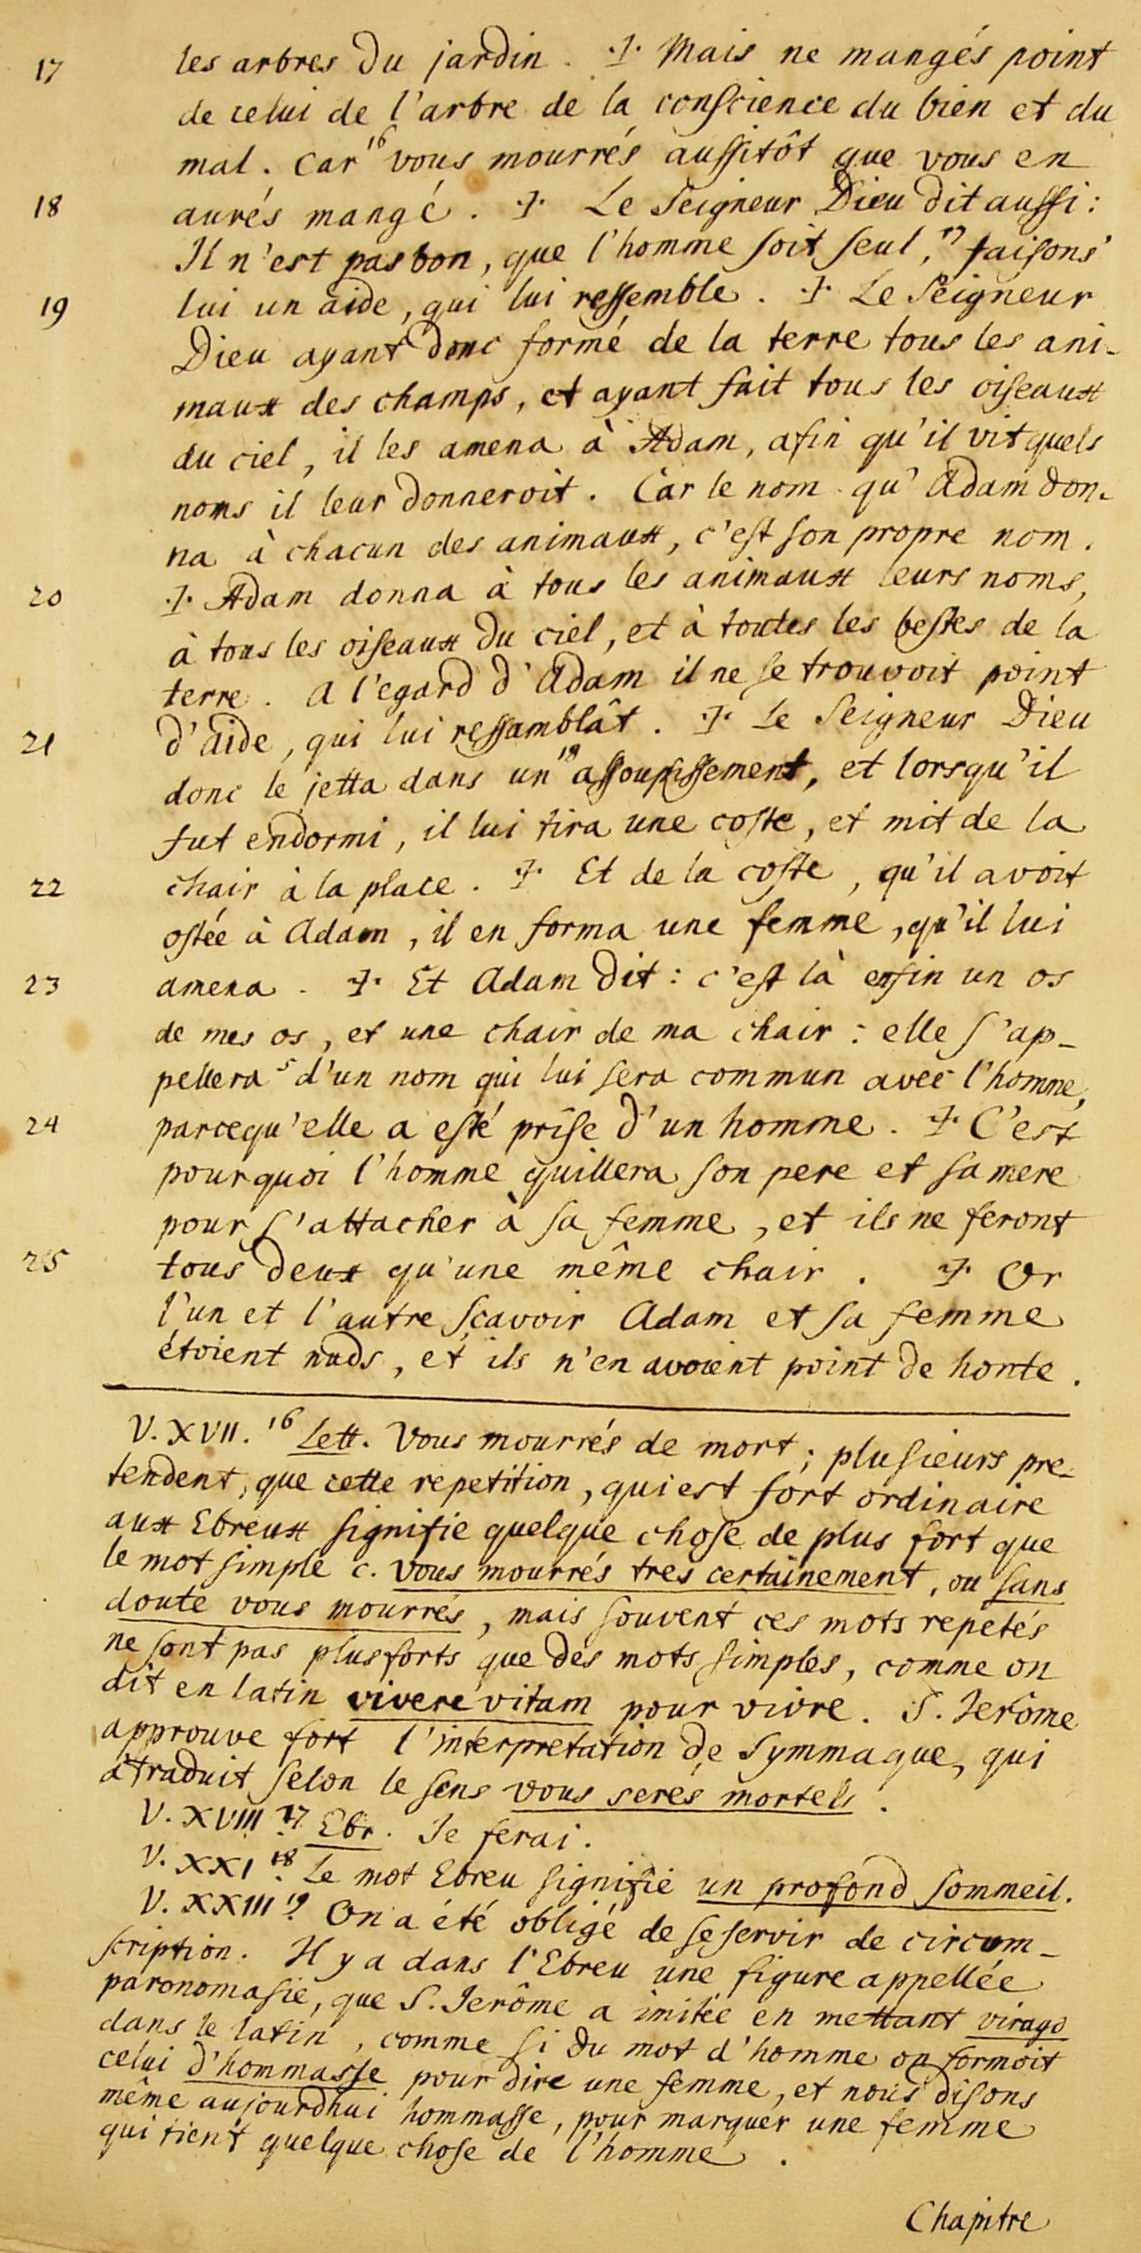 17 les arbres du jardin. ·Ɉ· Mais ne mangés point
de celui de l'arbre de la conscience du bien et du
mal. Car ¹⁶ vous mourrés aussitôt que vous en
18 aurés mangé. ·Ɉ· Le Seigneur Dieu dit aussi:
Il n'est pas bon, que l'homme soit seul, ¹⁷ faisons
19 lui un aide, qui lui ressemble. ·Ɉ· Le Seigneur
Dieu ayant donc formé de la terre tous les ani-
maux des champs, et ayant fait tous les oiseaux
du ciel, il les amena à Adam, afin qu'il vit quels
noms il leur donneroit. Car le nom qu'Adam don-
na à chacun des animaux, c'est son propre nom.
20 ·Ɉ· Adam donna à tous les animaux leurs noms,
à tous les oiseaux du ciel, et à toutes les bestes de la
terre. A l'egard d'Adam il ne se trouvoit point
21 d'aide, qui lui ressamblât. ·Ɉ· Le Seigneur Dieu
donc le jetta dans un ¹⁸ assoupissement, et lorsqu'il
fut endormi, il lui tira une coste, et mit de la
22 chair à la place. ·Ɉ· Et de la coste, qu'il avoit
ostée à Adam, il en forma une femme, qu'il lui
23 amena. ·Ɉ· Et Adam dit: c'est là enfin un os
de mes os, et une chair de ma chair: elle s'ap-
pellera ˢ d'un nom qui lui sera commun avec l'homme,
24 parcequ'elle a esté prise d'un homme. ·Ɉ· C'est
pourquoi l'homme quillera son pere et sa mere
pour s'attacher à sa femme, et ils ne feront
25 tous deux qu'une même chair. ·Ɉ· Or
l'un et l'autre sçavoir Adam et sa femme
étoient nuds, et ils n'en avoient point de honte.
V. XVII. ¹⁶ Lett. Vous mourrés de mort; plusieurs pre-
tendent, que cette repetition, qui est fort ordinaire
aux Ebreux signifie quelque chose de plus fort que
le mot simple c. vous mourrés tres certainement, ou sans
doute vous mourrés, mais souvent ces mots repetés
ne sont pas plus forts que des mots simples, comme on
dit en latin vivere vitam pour vivre. S. Jerôme
approuve fort l'interpretation de Symmaque, qui
a traduit selon le sens vous seres mortels.
V. XVIII ¹⁷. Ebr. Je ferai.
V. XXI ¹⁸. Le mot Ebreu signifie un profond sommeil.
V. XXIII ¹⁹. On a été obligé de se servir de circum-
scription. Il y a dans l'Ebreu une figure appellée
paronomasie, que S. Jerôme a imitée en mettant virago
dans le latin, comme si du mot d'homme on formoit
celui d'hommasse pour dire une femme, et nous disons
même aujourdhui hommasse, pour marquer une femme
qui tient quelque chose de l'homme.
Chapitre